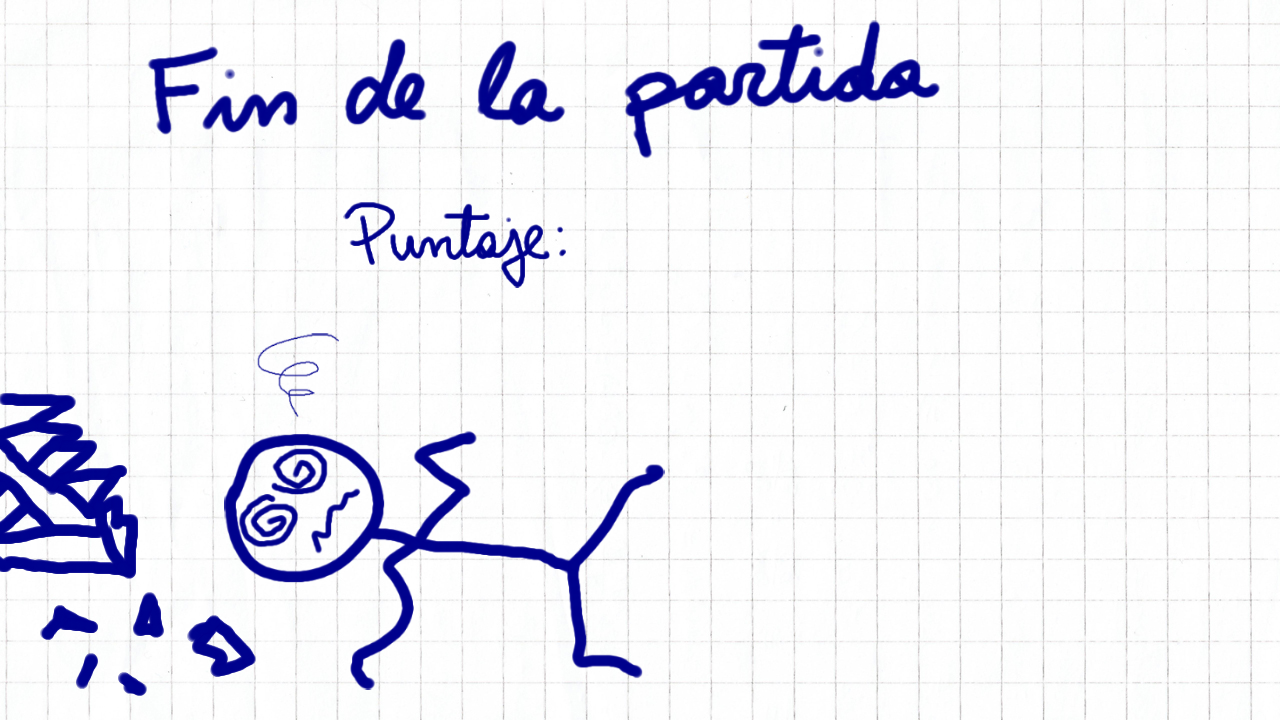 Fin de la partida
Puntaje: